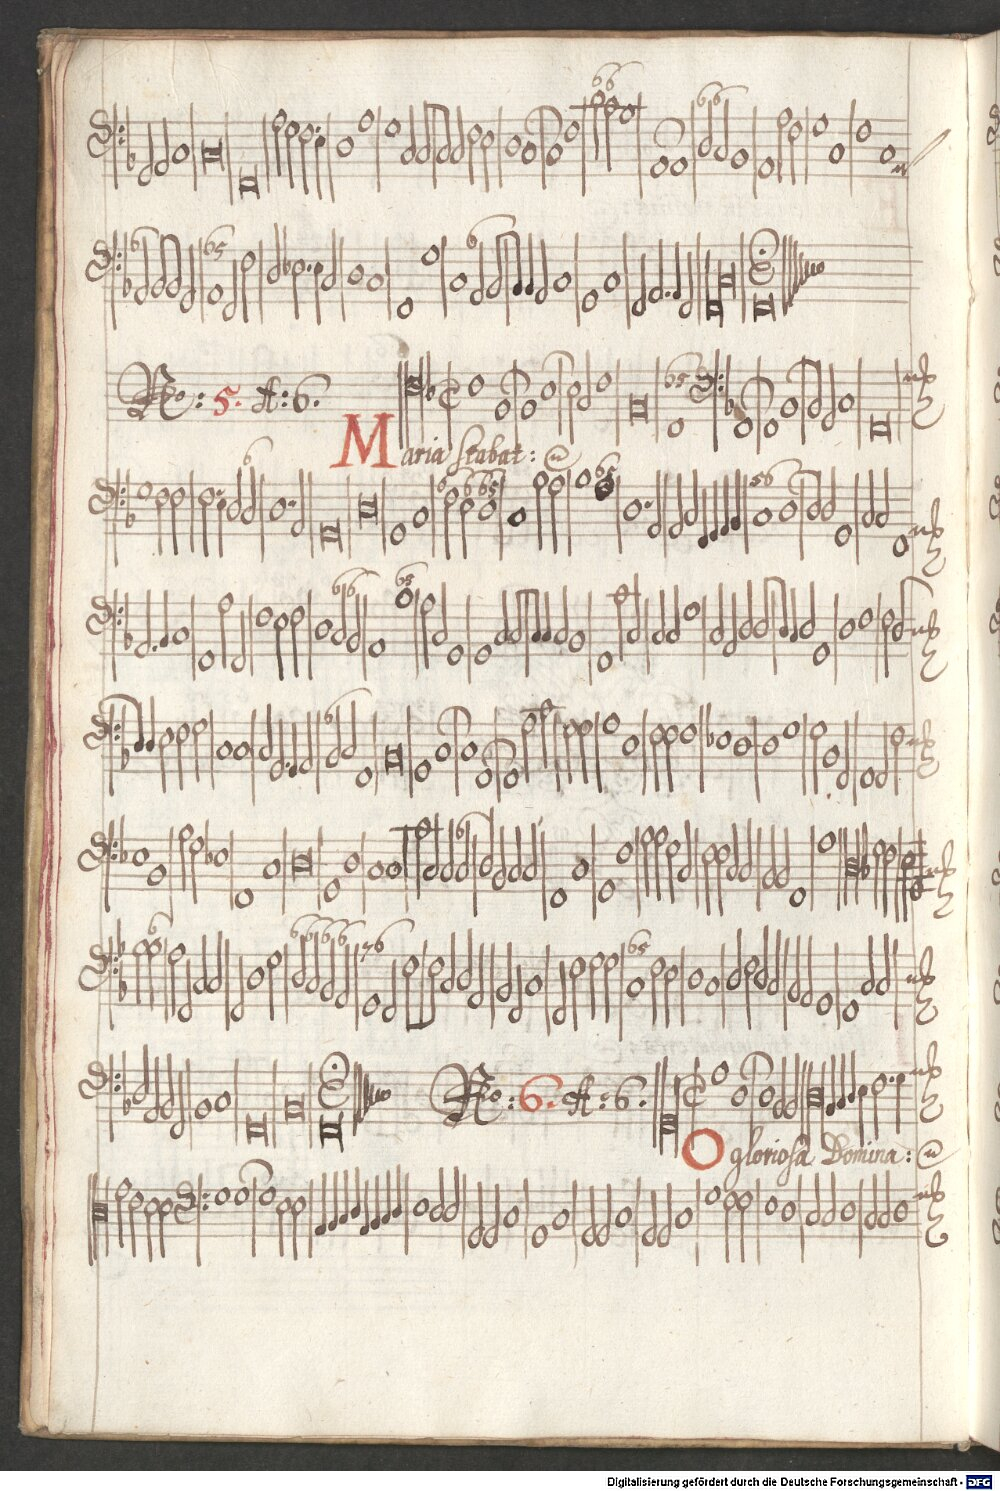 No: 5. A: 6.
Maria stabat:
No: 6. A: 6.
O gloriosa Domina:
Digitalisierung gefördert durch die Deutsche Forschungsgemeinschaft - DFG